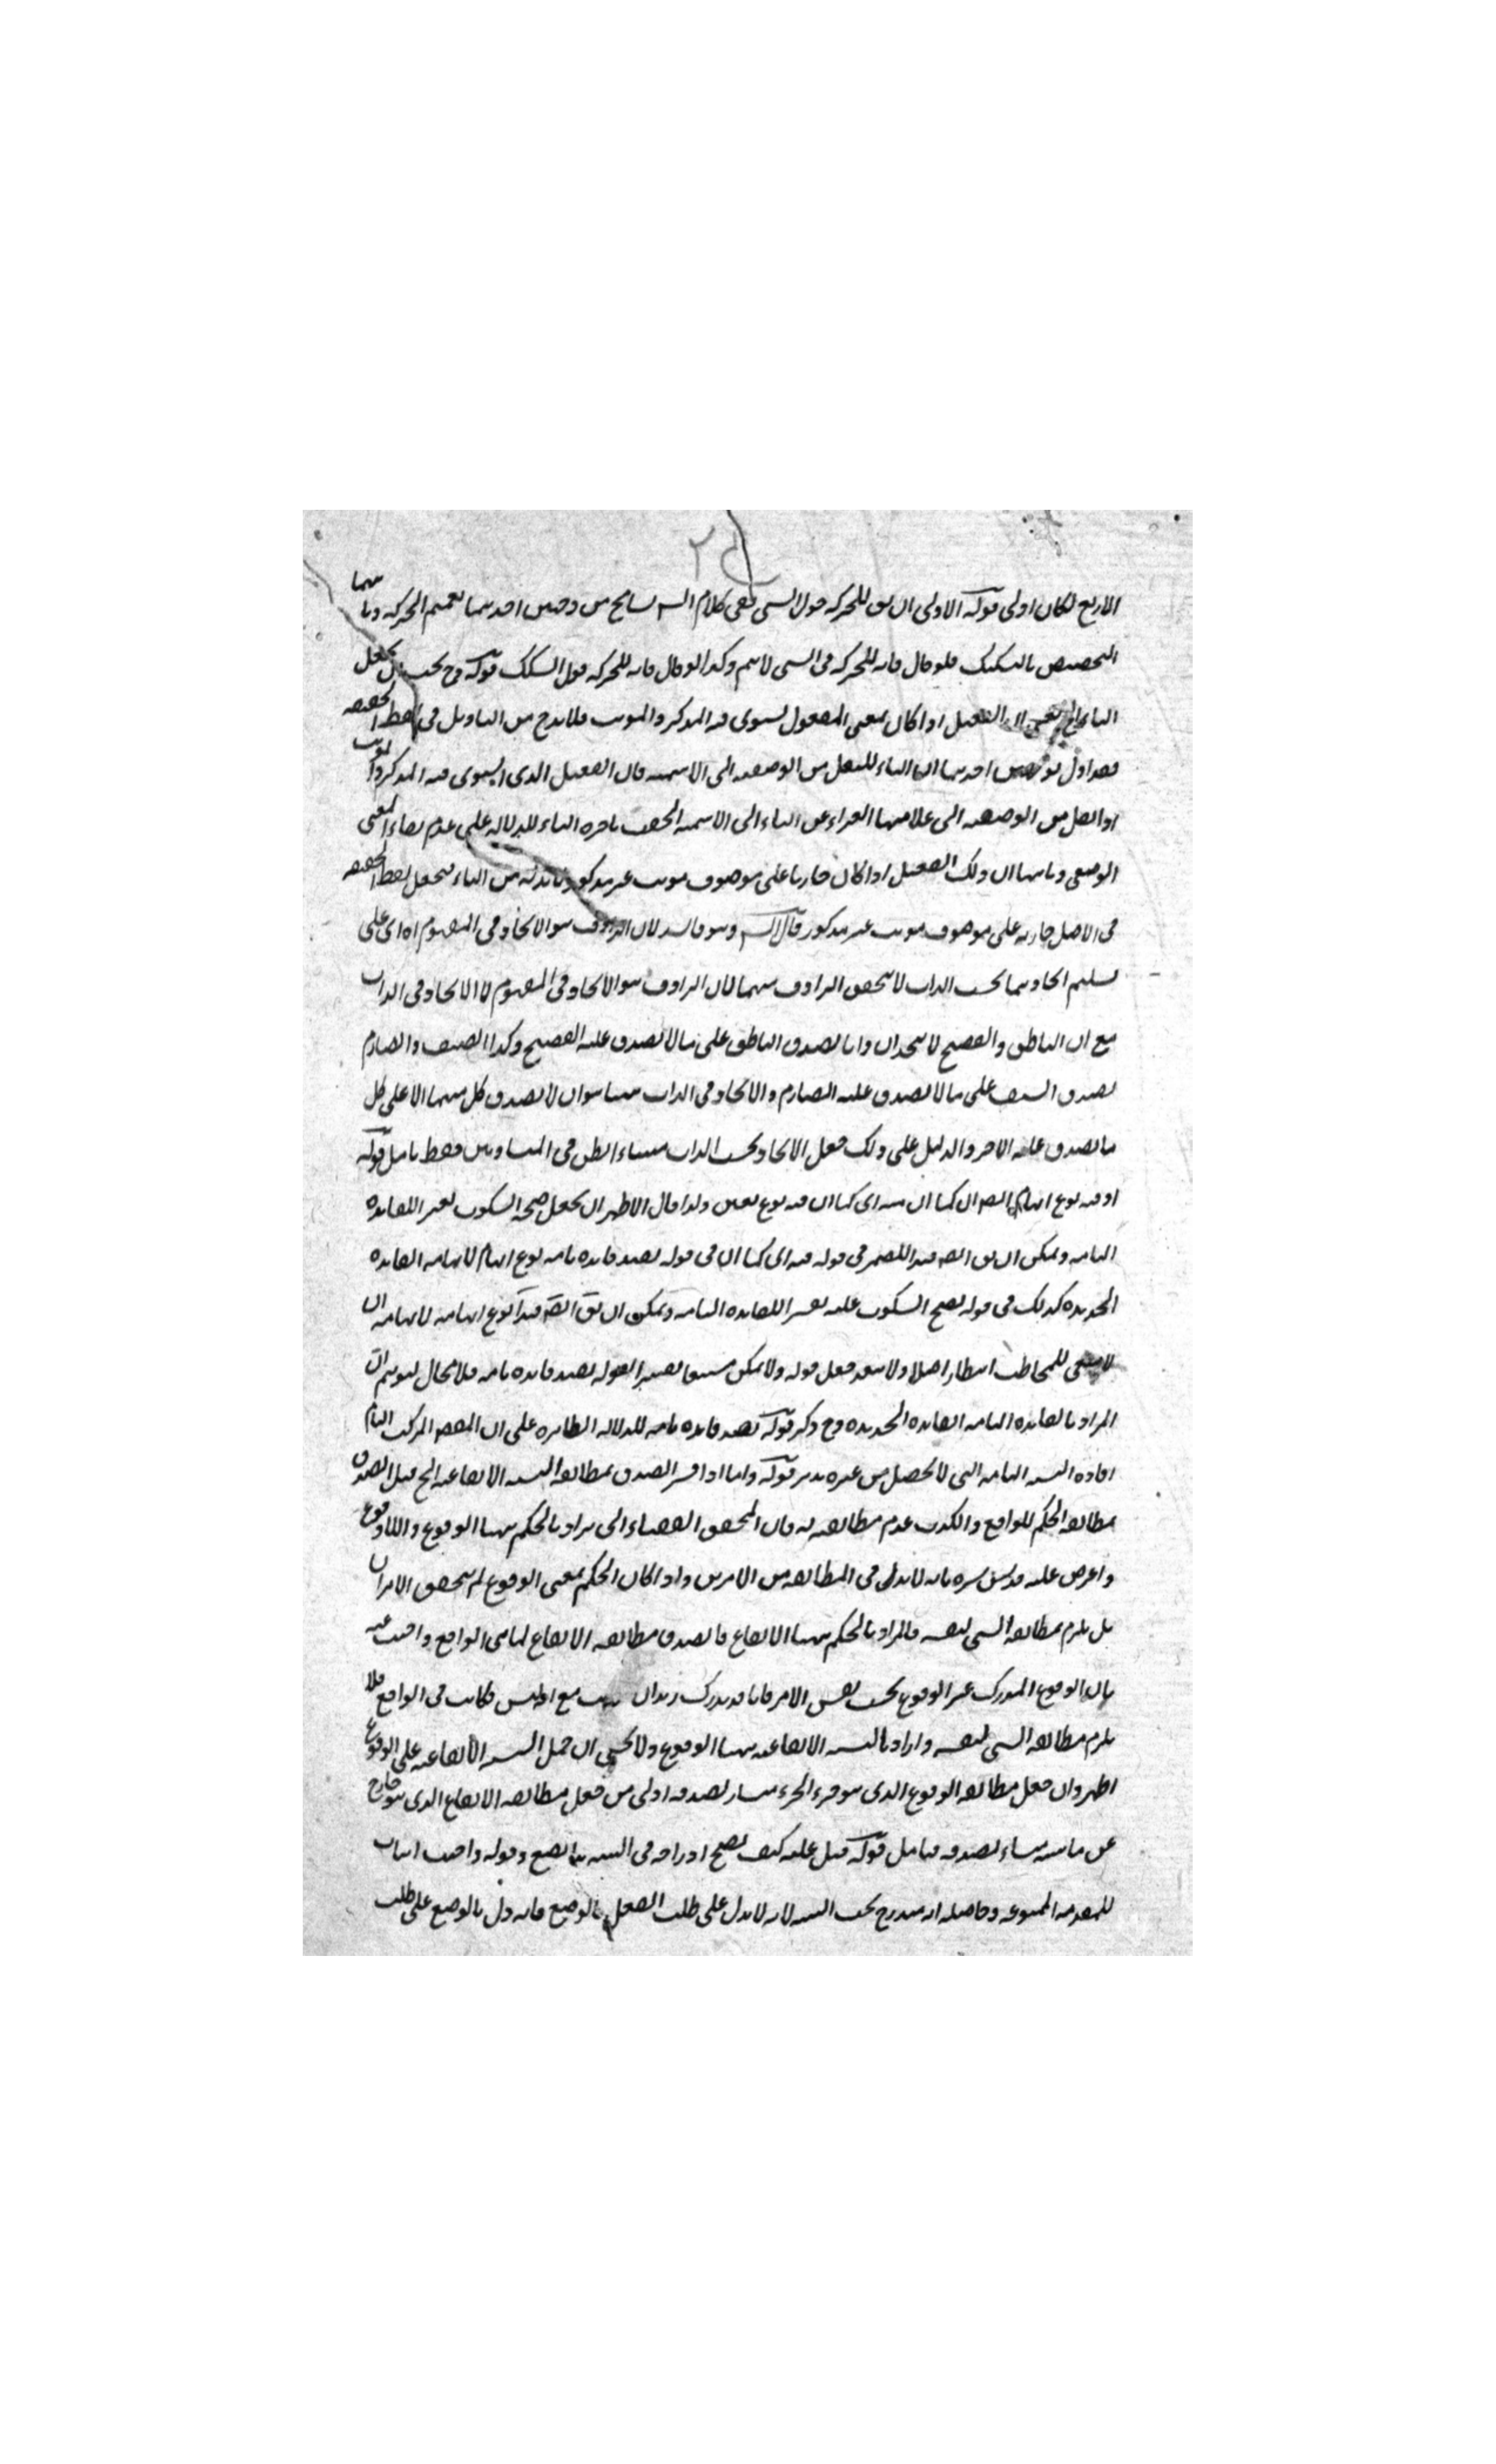 الاربع لكان اولى قوله الاولى ان يق للحركة حول الشيء ففي كلام الش تسامح من وجهين احدهما تعميم الحركة وثانيهما
التخصيص بالسكك فلو قال فانه للحركة في الشيء لاسم وكذا لو قال فانه للحركة حول السكك قوله وح يجب ان يجعل
الفعيل اذا كان بمعنى المفعول يستوي فيه المذكر والمونث فلا بدح من التاويل في لفظ الحقيقة
احدهما ان التاء للنقل من الوصفية الى الاسمية فان الفعيل الذي يستوي فيه المذكر والمونث
اذا نقل من الوصفية الى علامتها العراء عن التاء الى الاسمية الحقت باخره التاء للدلالة على عدم بقاء المعنى
الوصفي وثانيها ان ذلك الفعيل اذا كان جاريا على موصوف مونث غير مذكور فلا بد له من التاء فيجعل لفظ الحقيقة
في الاصل جارية على موصوف مونث غير مذكور قال الش وهو فاسد لان الترادف هو الاتحاد في المفهوم اه اي على
تسليم اتحادهما بحسب الذات لا يتحقق الترادف بينهما لان الترادف هو الاتحاد في المفهوم لا الاتحاد في الذات
مع ان الناطق والفصيح لا يتحدان ذاتا لصدق الناطق على ما لا يصدق عليه الفصيح وكذا السيف والصارم
لصدق السيف على ما لا يصدق عليه الصارم والاتحاد في الذات ههنا هو ان لا يصدق كل منهما الا على كل
ما يصدق عليه الاخر والدليل على ذلك جعل الاتحاد بحسب الذات منشاء الظن في المتساويين فقط تامل قوله
او فيه نوع ابهام ايضا كما ان فيه اي كما ان فيه نوع تعيين ولذا قال الاظهر ان يجعل صحة السكوت تفسيرا للفائدة
التامة ويمكن ان يق ايضا فيه الضمير في قوله فيه اي كما ان في قوله يفيد فائدة تامة نوع ابهام لايهامه الفائدة
الجديدة كذلك في قوله يصح السكوت عليه تفسيرا للفائدة التامة ويمكن ان يق ايضا فيه نوع ابهام لايهامه ان
لا يبقى للمخاطب انتظار اصلا ولا يبعد جعل قوله ولا يكون مستتبعا تفسيرا لقوله يفيد فائدة تامة فلا مجال لتوهم ان
المراد بالفائدة التامة الفائدة الجديدة وح ذكر قوله يفيد فائدة تامة للدلالة الظاهرة على ان المقصود المركب التام
افادة النسبة التامة التي لا تحصل من غيره تدبر قوله واما اذا فسر الصدق بمطابقة النسبة الايقاعية الخ قيل الصدق
مطابقة الحكم للواقع والكذب عدم مطابقته له قال المحقق التفتازاني يراد بالحكم ههنا الوقوع واللاوقوع
واعترض عليه قدس سره بانه لا بد في المطابقة من الامرين واذا كان الحكم بمعنى الوقوع لم يتحقق الامران
بل يلزم مطابقة الشيء لنفسه فالمراد بالحكم ههنا الايقاع فالصدق مطابقة الايقاع لما في الواقع واجيب عنه
بان الوقوع المدرك غير الوقوع بحسب نفس الامر فانا قد ندرك مع انه ليس كانت في الواقع فلا
يلزم مطابقة الشيء لنفسه واراد بالنسبة الايقاعية ههنا الوقوع ولا يخفى ان حمل النسبة الايقاعية على الوقوع
اظهر وان جعل مطابقة الوقوع الذي هو جزء الخبر منشأ لصدقه اولى من جعل مطابقة الايقاع الذي هو خارج
عن ماهيته منشاء لصدقه فتامل قوله قيل عليه كيف يصح ادراجه في التنبيه وقوله واجيب اثبات
للمقدمة الممنوعة وحاصله انه مندرج تحت التنبيه لانه لا يدل على طلب الفعل بالوضع فانه دل بالوضع على طلب